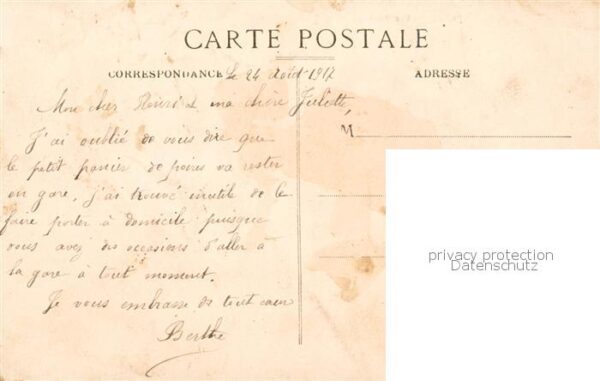 CARTE POSTALE
CORRESPONDANCE Le 24 Août 1917
ADRESSE
Mon cher Henri & ma chère Juliette,
M
J'ai oublié de vous dire que
le petit panier de poires va rester
en gare, j'ai trouvé inutile de le
faire porter à domicile puisque
vous avez des occasions d'aller à
la gare à tout moment.
Je vous embrasse de tout cœur
Berthe
privacy protection
Datenschutz